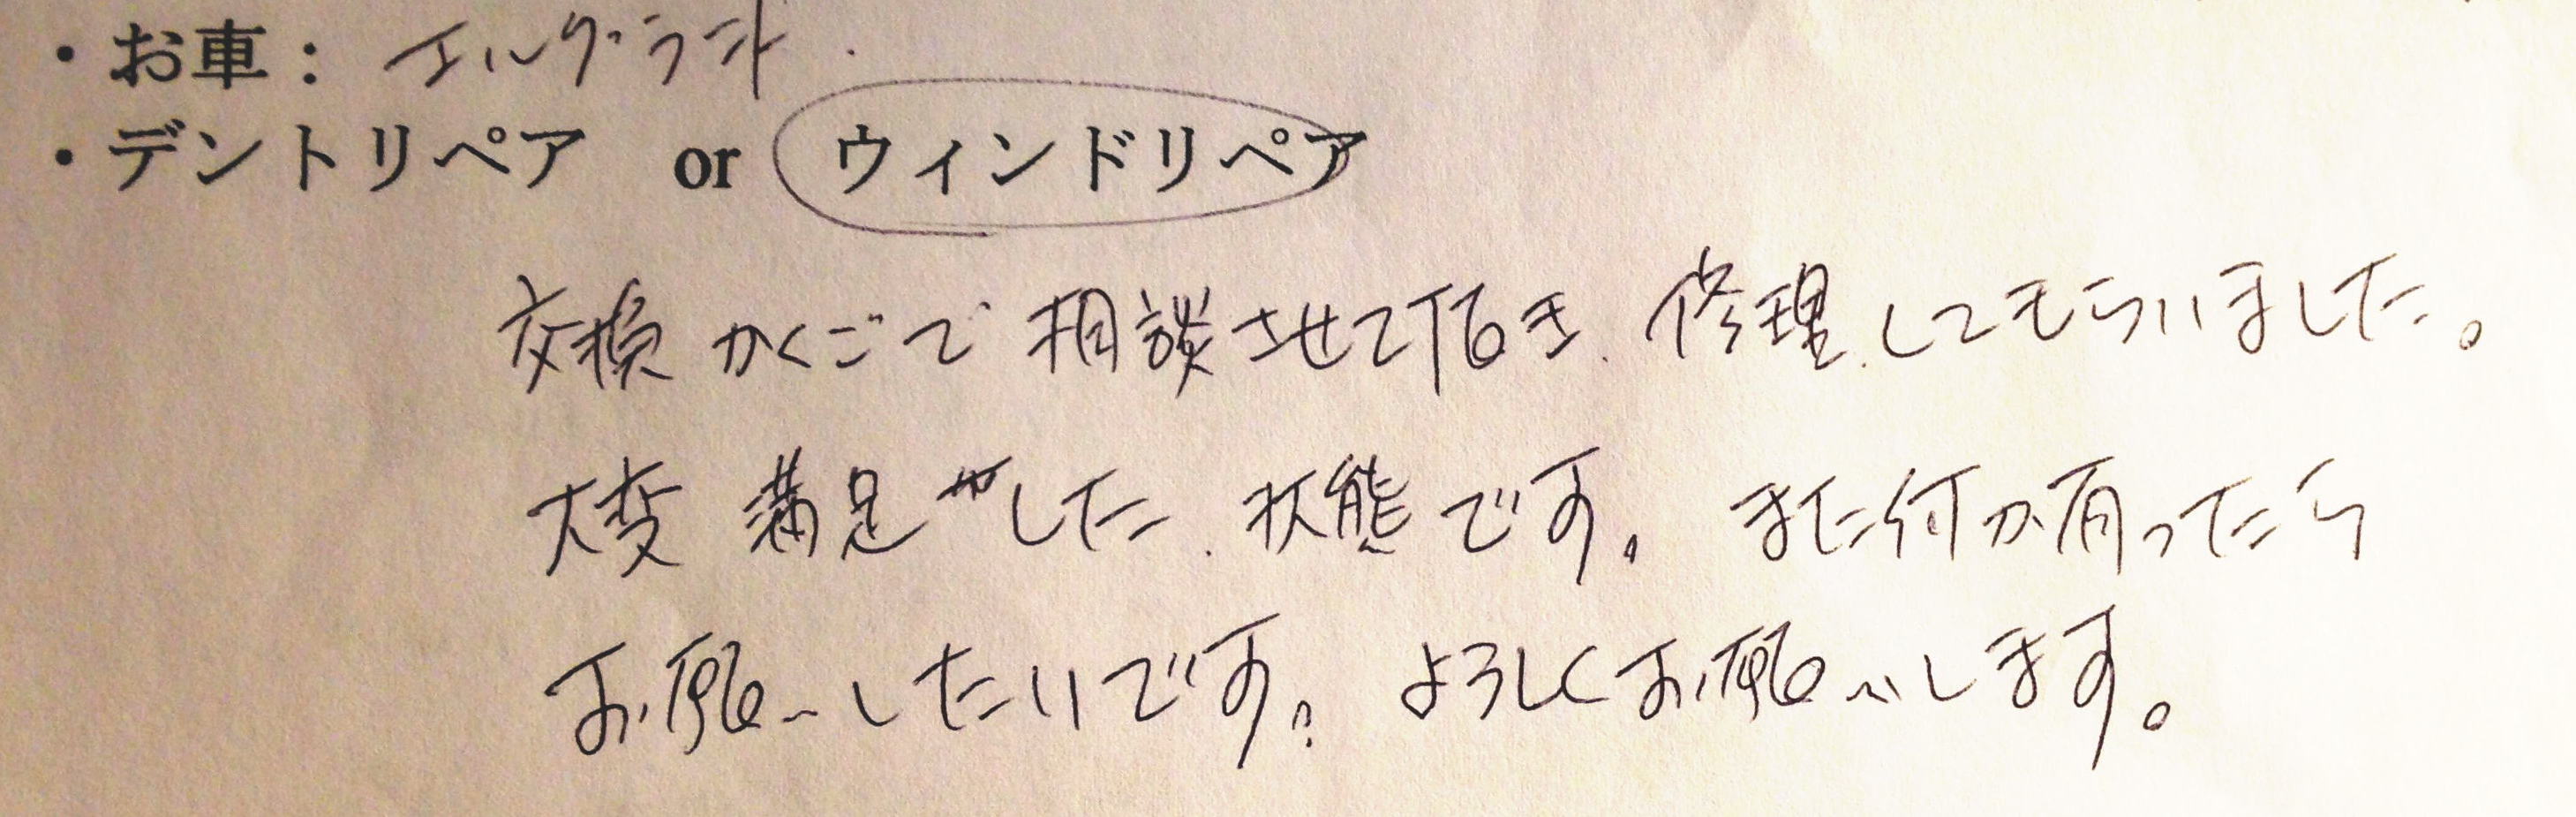 ・お車： エルグランド
・デントリペア or ウィンドリペア
交換かくごで相談させて頂き、修理してもらいました。
大変満足した状態です。また何か有ったら
お願いしたいです。よろしくお願いします。